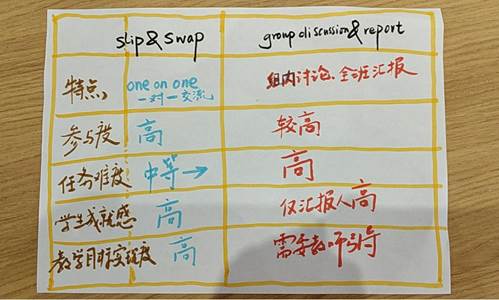 slip & swap
group discussion & report
特点
one on one
一对一交流
组内讨论、全班汇报
参与度
高
较高
任务难度
中等→
高
学生成就感
高
仅汇报人高
教学目标实现度
高
需要教师引